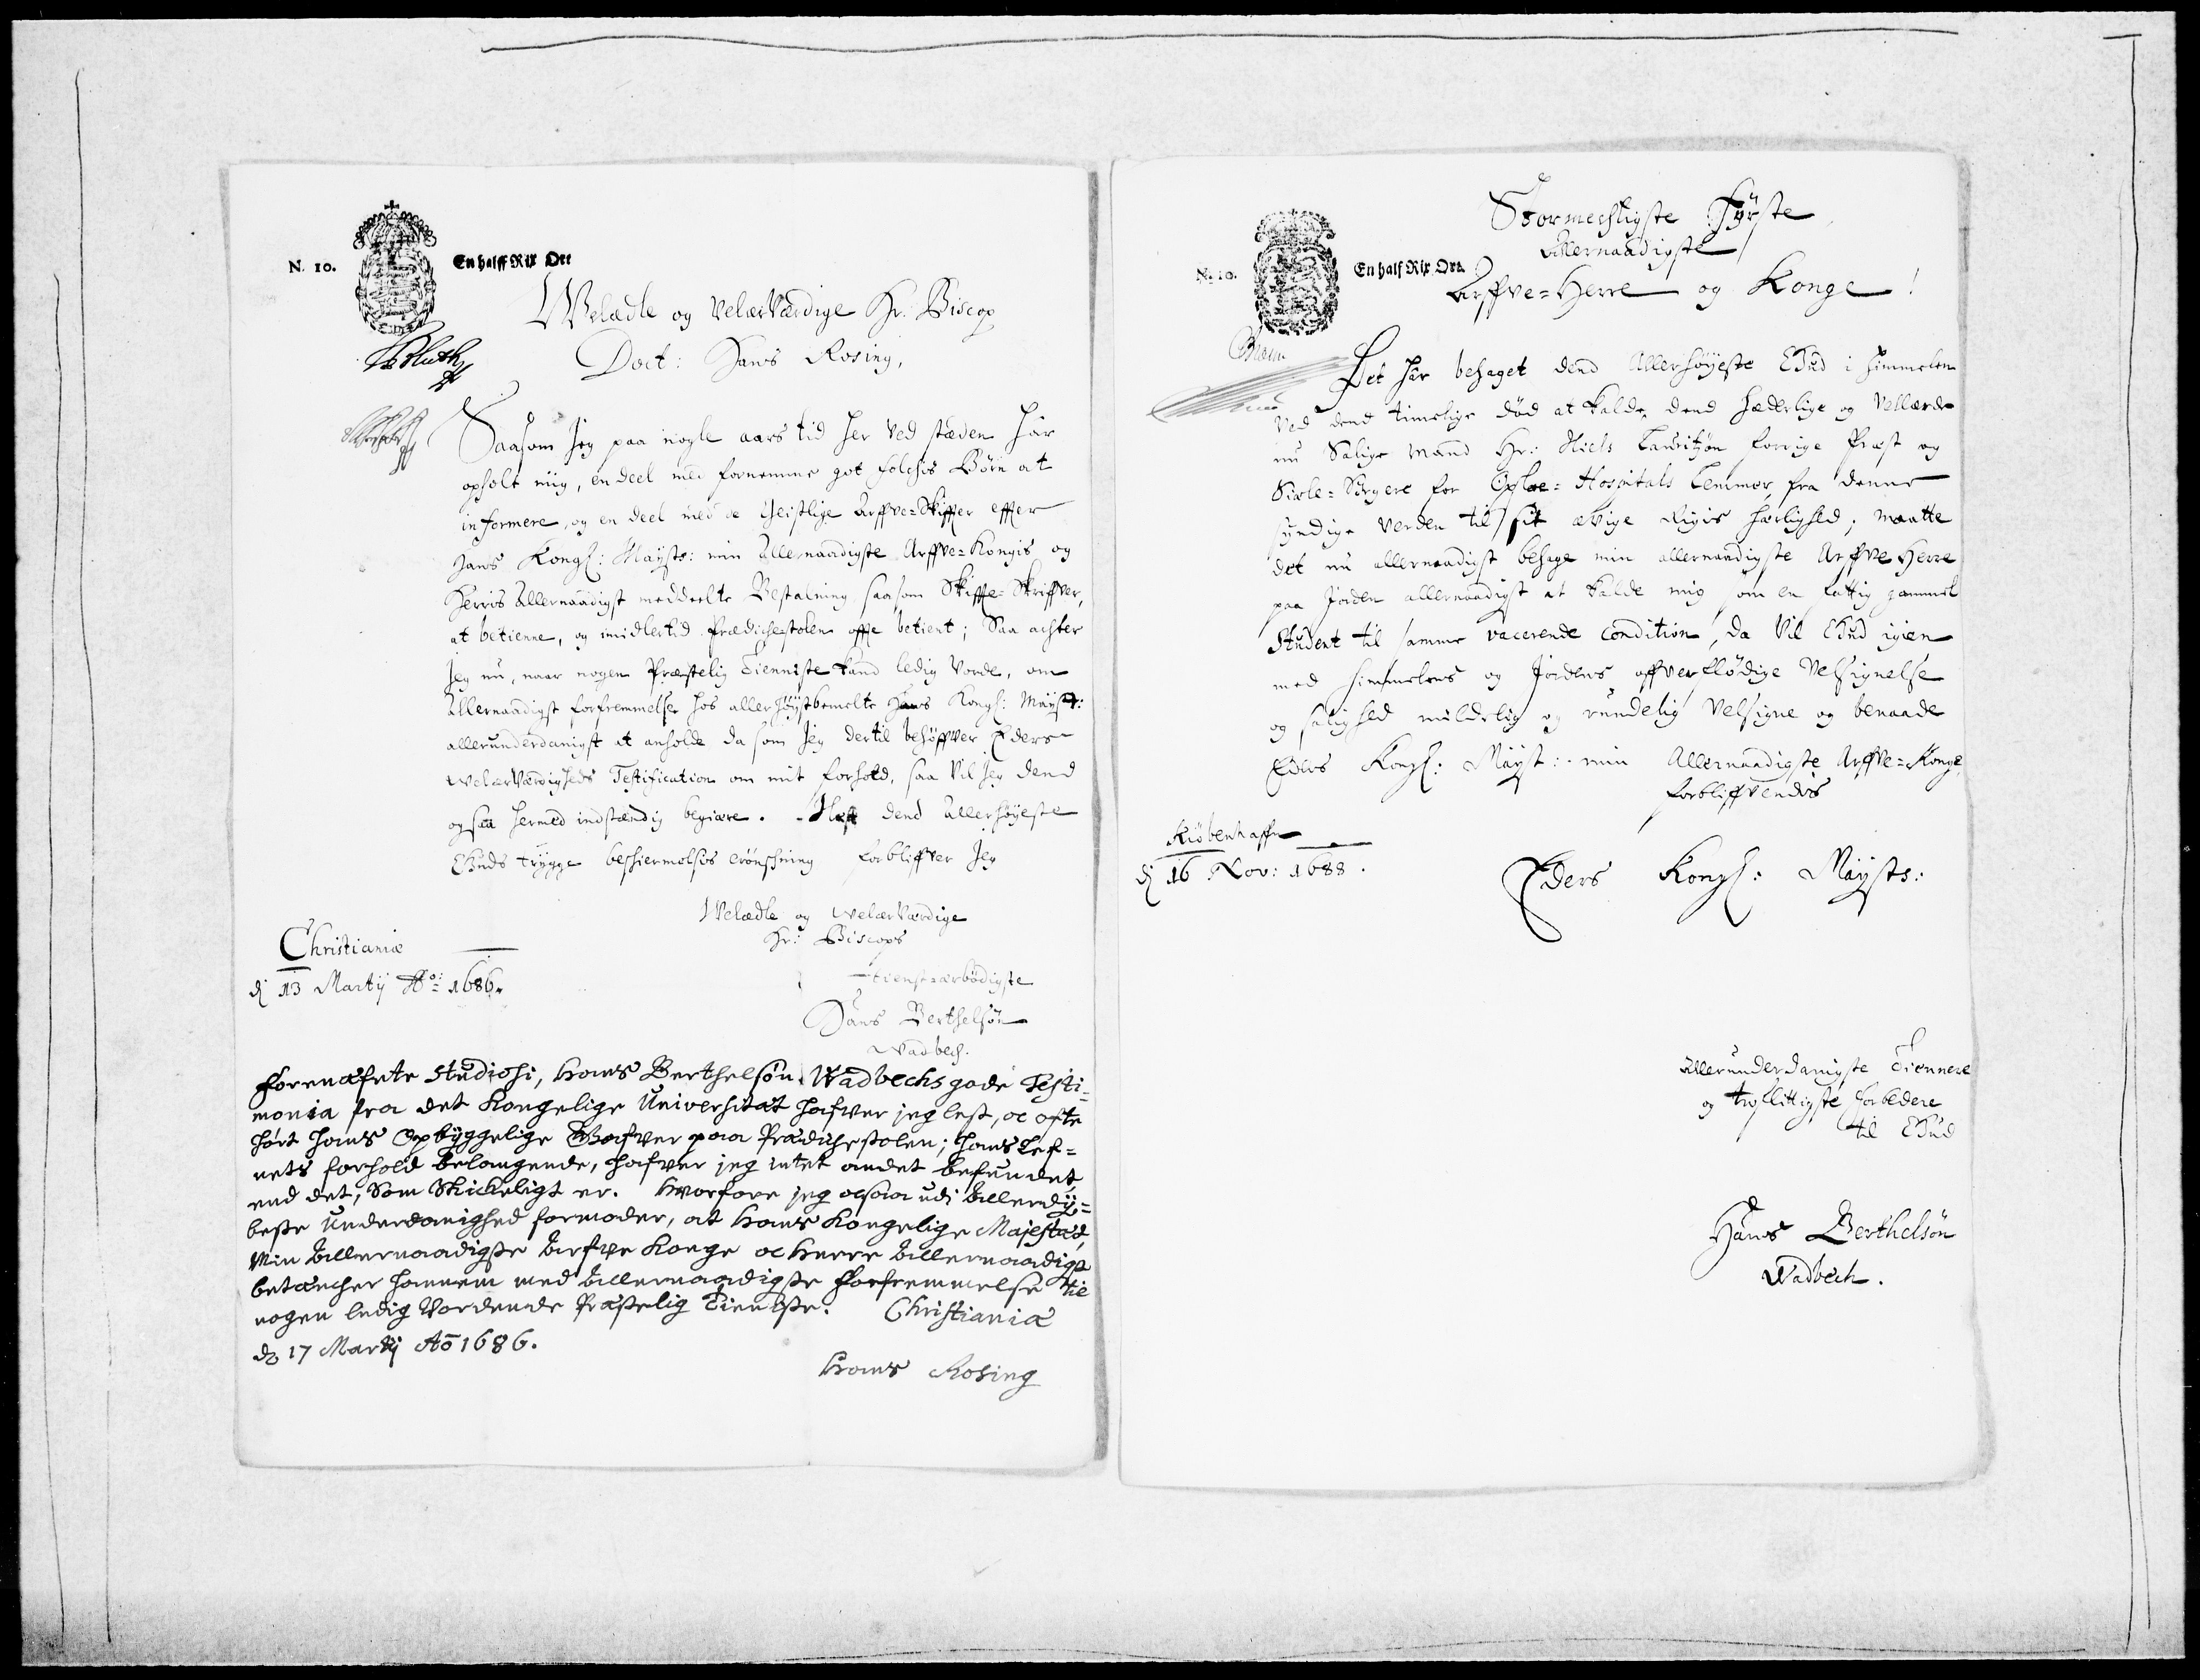 N. 10.
En halff Rix Ort
Welædle og velærværdige Hr: Biscop
Doct: Hans Rosing,
Saasom Jeg paa nogle aars tid her ved stæden har
opholt miig, en deel med fornemme got folchis Børn at
informere, og en deel med de Geistlige Arffve-Skiffter effter
Hans Kongl: Mayts: min Allernaadigste Arffve-Kongis og
Herris Allernaadigst meddeelte Bestalning saasom Skiffte-Skriffver,
at betienne, og imidlertid Prædichestolen offte betient; Saa achter
Jeg nu, naar nogen Præstelig Tienniste kand ledig vorde, om
Allernaadigst forfremmelse hos allerhøystbemelte Hans Kongl: Mayst:
allerunderdanigst at anholde da som Jeg dertil behøffver Eders
WelærVærdigheds Testification om mit forhold, saa vil Jeg dend
ogsaa hermed indstændig begiære. Næst dend Allerhøyeste
Guds trygge beschiermelsis forbliffver Jeg
Welædle og welærværdige
Hr: Biscops
Christianiæ
dj 13 Martij Ao: 1686.
tienstærbødigste
Hans Berthelsøn
Wadbech.
Forenæfnte Studiosi, Hans Berthelsøn Wadbechs gode Testi-
monia fra det Kongelige Universitæt hafver jeg lest, oc ofte
hørt hans Opbyggelige Gafver paa Prædichestolen; hans Lef-
nets forhold belangende, hafver jeg intet andet befundet,
end det, Som Skickeligt er. Hvorfore jeg ocsaa udi Allerdy-
beste Underdanighed formoder, at Hans Kongelige Majestæt,
Min Allernaadigste Arfve Konge oc Herre Allernaadigst
betæncher hannem med Allernaadigste forfremmelse til
nogen ledig Vordende Præstelig Tieniste. Christianiæ
d. 17 Martij Ao 1686.
Hans Rosing
Stormechtigste Fyrste
Allernaadigste
N. 10.
En half Rix Ort.
Arffve-Herre og Konge!
Det har behaget dend Allerhøyeste Gud i Himmelen
ved dend timelige død at kalde dend Hæderlige og Vellærde
nu Salige Mand Hr: Niels Lauritzøn forrige Præst og
Siæle-Sørgere for Opsloe-Hospitals Lemmer, fra denne
syndige verden til sit ævige Rigis herlighed; maatte
det nu allernaadigst behage min allernaadigste Arffve Herre
paa Jorden allernaadigst at kalde mig som en fattig gammel
Student til samme vacerende condition, da vil Gud igien
med himmelens og Jordens offverflødige Velsignelse
og salighed mildelig og rundelig Velsigne og benaade
Eders Kongl: Mayst: min Allernaadigste Arffve-Konge,
forbliffvendis
Kiøbenhaffn
dj 16 Nov: 1688.
Eders Kongl: Maysts:
Allerunderdanigste Tiennere
og troflittigste forbedere
til Gud
Hans Berthelsøn
Wadbech.